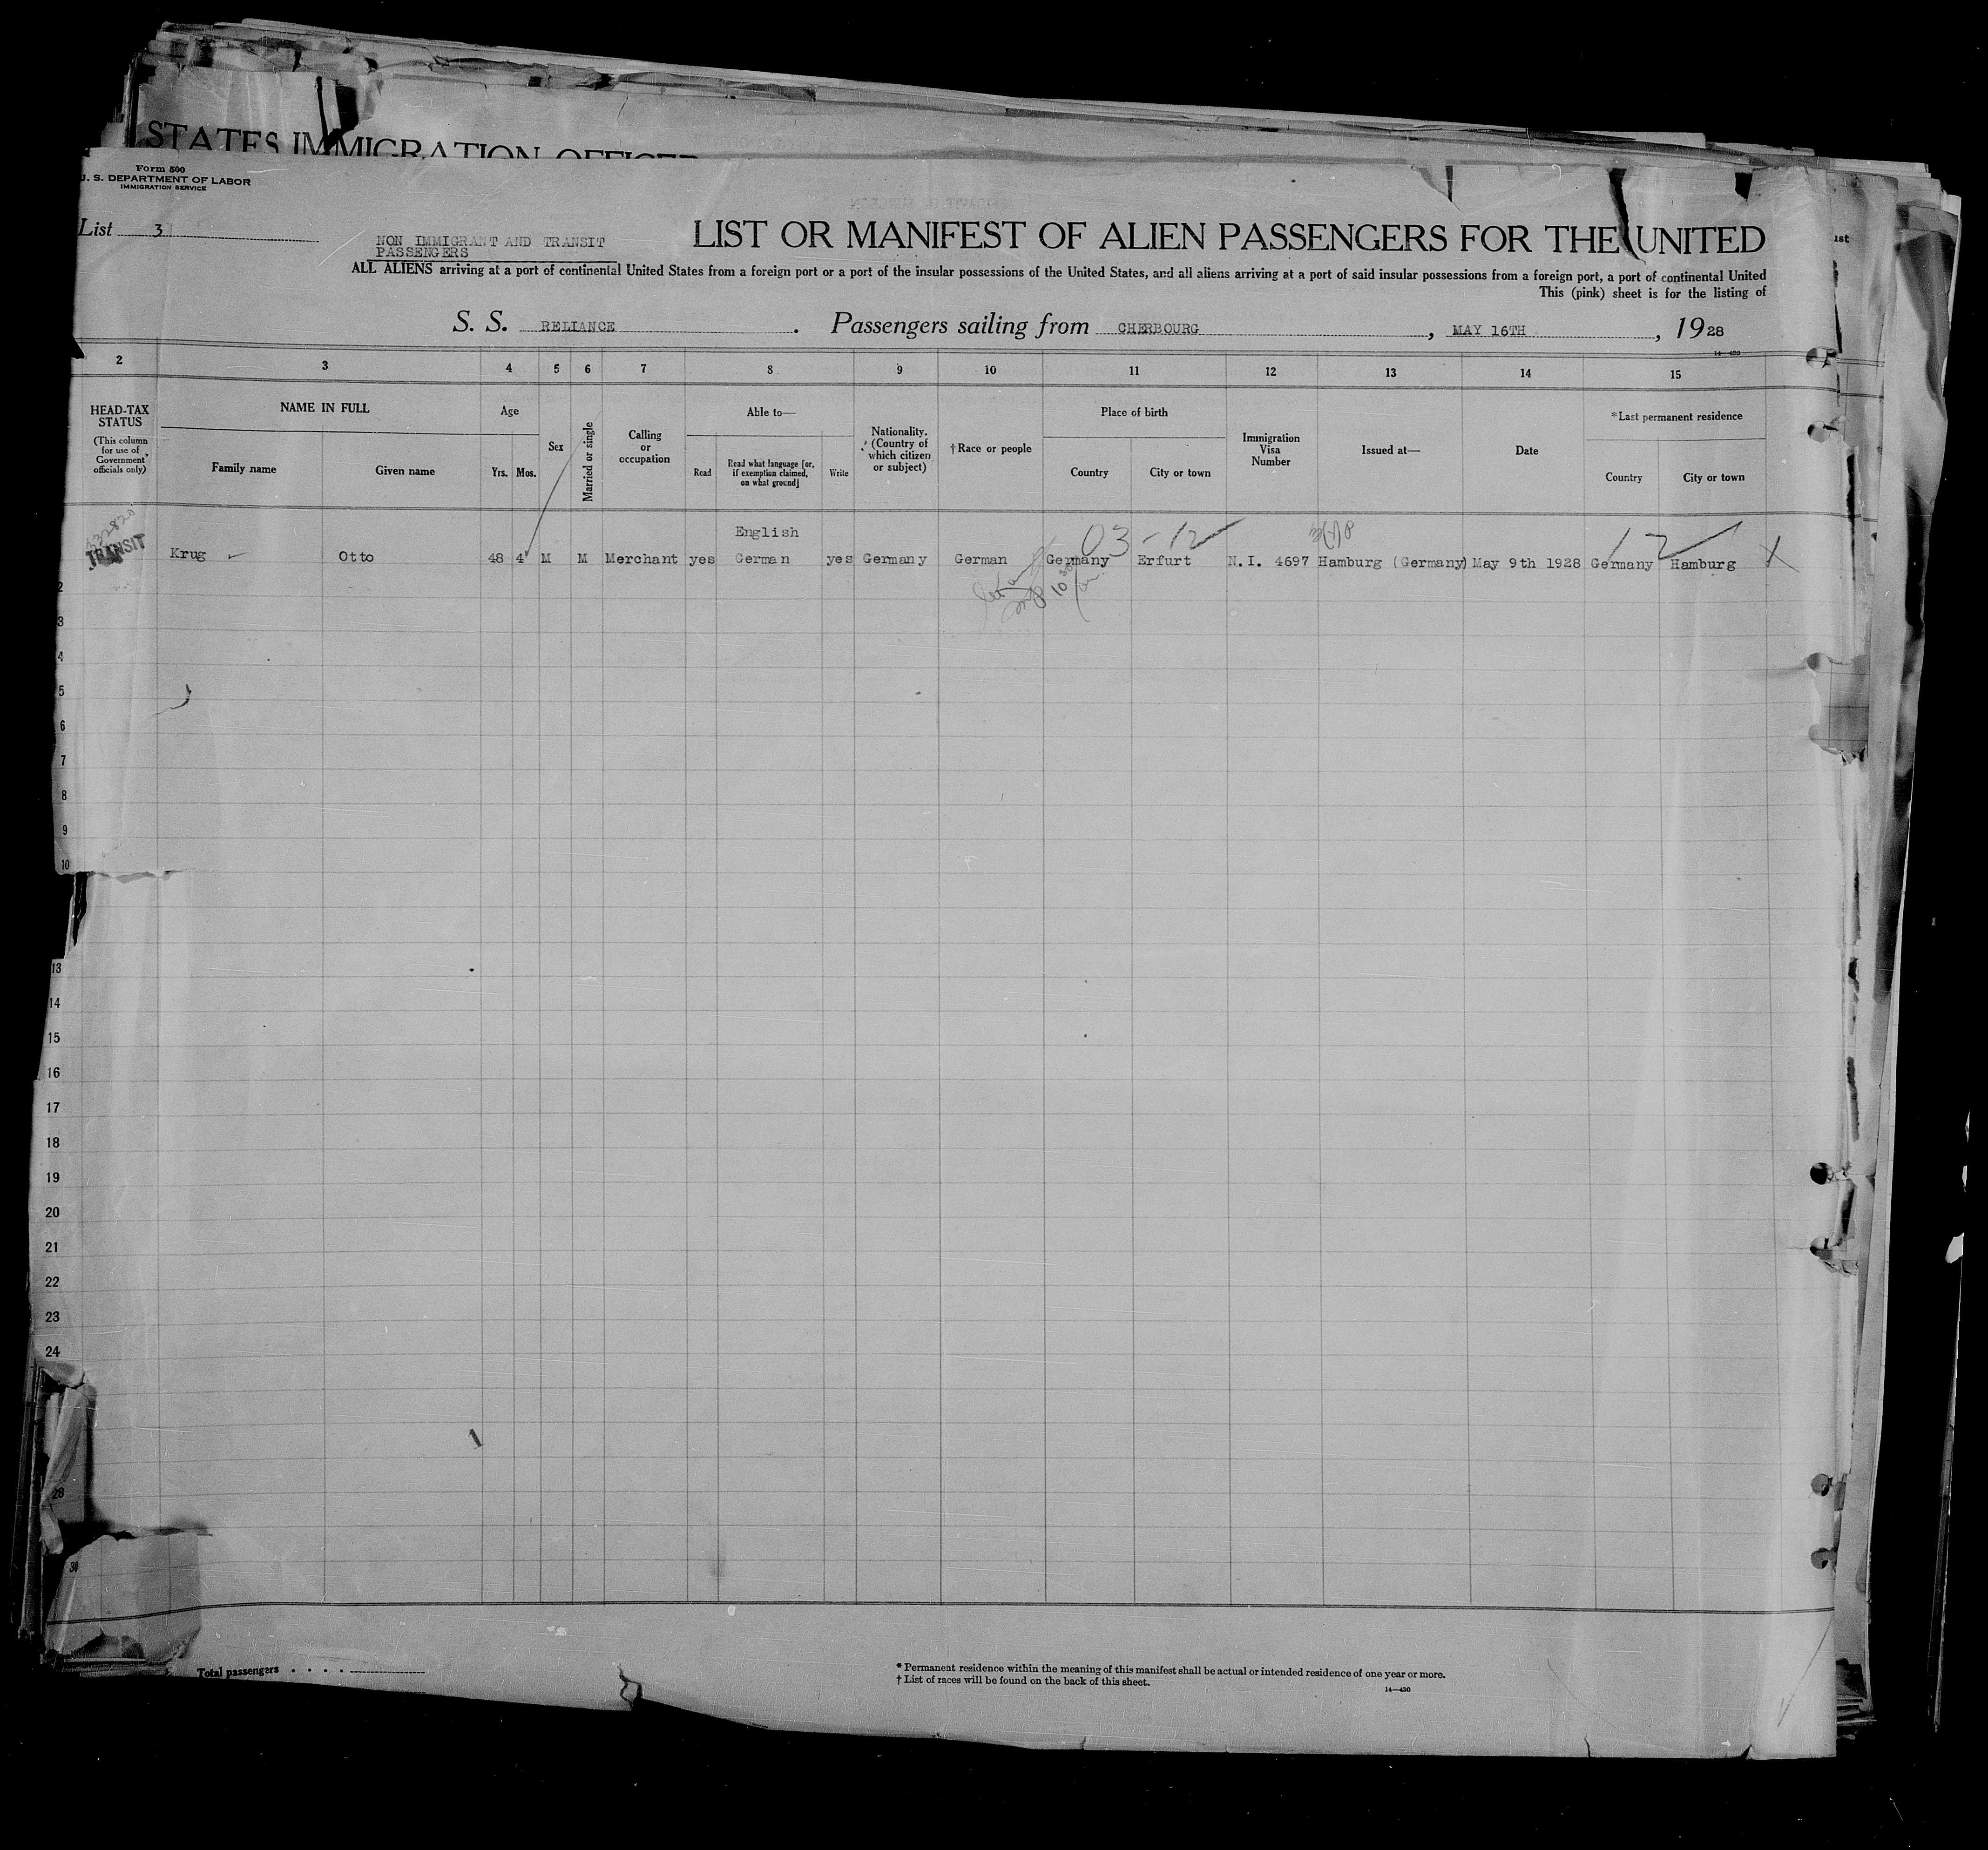 STATES IMMIGRATION OFFICER
Form 500
U. S. DEPARTMENT OF LABOR
IMMIGRATION SERVICE
List 3
NON IMMIGRANT AND TRANSIT
PASSENGERS
LIST OR MANIFEST OF ALIEN PASSENGERS FOR THE UNITED
ALL ALIENS arriving at a port of continental United States from a foreign port or a port of the insular possessions of the United States, and all aliens arriving at a port of said insular possessions from a foreign port, a port of continental United
This (pink) sheet is for the listing of
S. S. RELIANCE. Passengers sailing from CHERBOURG, MAY 16TH, 1928
14—430
2 3 4 5 6 7 8 9 10 11 12 13 14 15
HEAD-TAX STATUS
(This column for use of Government officials only)
NAME IN FULL
Family name
Given name
Age
Yrs. Mos.
Sex
Married or single
Calling or occupation
Able to—
Read
Read what language [or, if exemption claimed, on what ground]
Write
Nationality. (Country of which citizen or subject)
† Race or people
Place of birth
Country
City or town
Immigration Visa Number
Issued at—
Date
*Last permanent residence
Country
City or town
English
03-12
12
TRANSIT Krug Otto 48 4 M M Merchant yes German yes Germany German Germany Erfurt N.I. 4697 Hamburg (Germany) May 9th 1928 Germany Hamburg X
2
3
4
5
6
7
8
9
10
13
14
15
16
17
18
19
20
21
22
23
24
28
30
Total passengers . . . .
* Permanent residence within the meaning of this manifest shall be actual or intended residence of one year or more.
† List of races will be found on the back of this sheet.
14—430